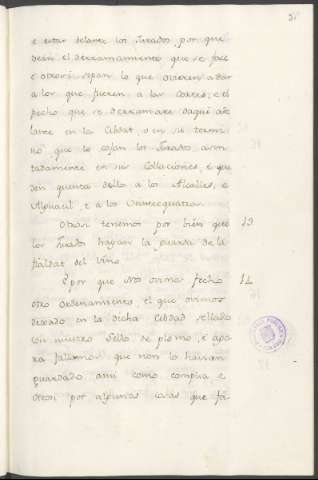 e estar delante los Jurados, por que
vean el derramamiento que se face
e otrosi sepan lo que ovieren a dar
a los que fueren a las Cortes; e el
pecho que se derramare daqui ade
lante en la Cibdat, o en su termi
no que lo cojan los Jurados ayun
tadamente en sus Collaciones, e que
den quenta dello a los Alcalles, e
Alguacil, e a los Veinte quatro.
Otrosi tenemos por bien que 13
los Jurados hayan la guarda de la
fialdat del vino.
E por que Nos ovimos fecho 14
otro Ordenamiento, el que ovimos
dexado en la dicha Cibdad sellado
con nuestro Sello de plomo, e ago
ra fallamos que non lo havian
guardado asi como complia, e
otrosi por algunas cosas que fa-